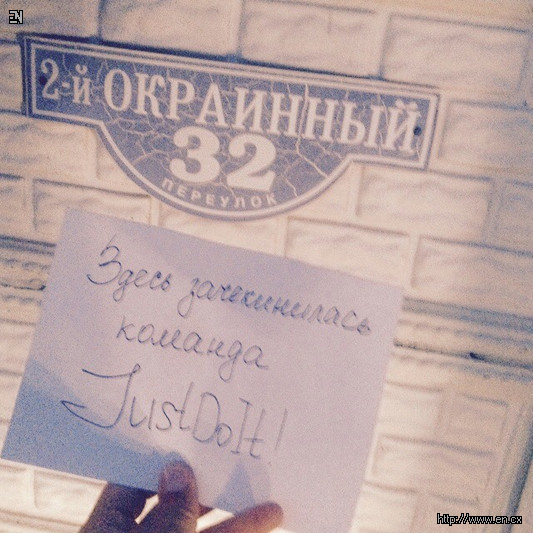 EN
2-й ОКРАИННЫЙ
32
ПЕРЕУЛОК
Здесь зачекинилась
команда
JustDoIt!
http://www.en.cx